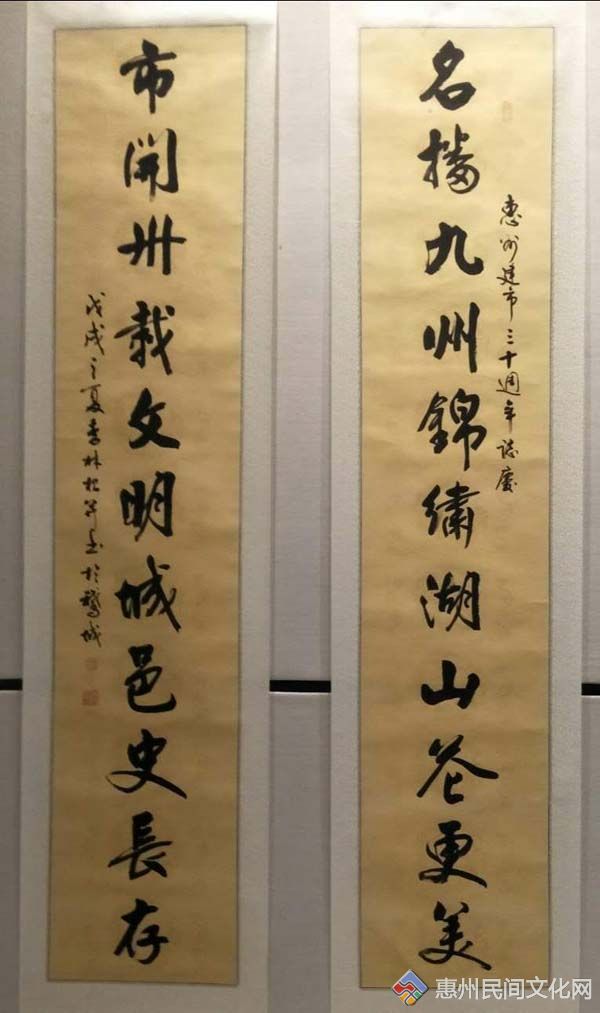 名播九州錦繡湖山花更美
惠州建市三十週年誌慶
市開卅載文明城邑史長存
戊戌之夏李林松笄書於鵝城
惠州民间文化网